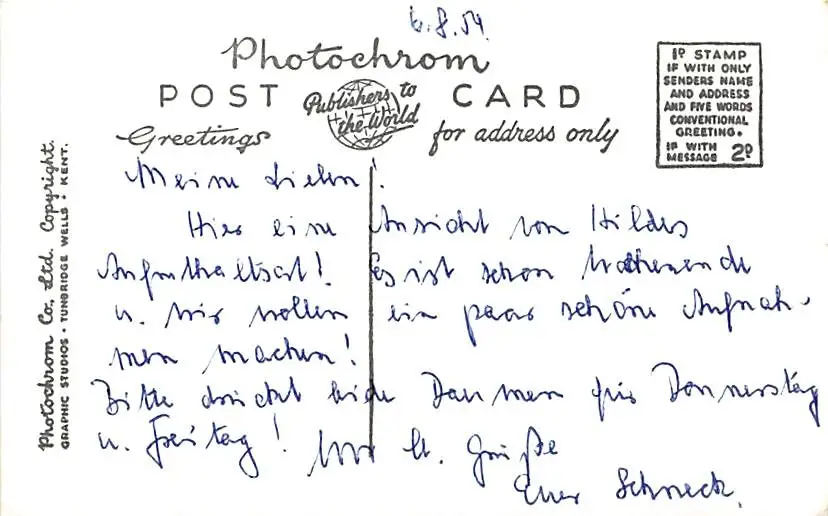 6.8.54.
Photochrom
POST CARD
Publishers to
the World
Greetings
for address only
1D STAMP
IF WITH ONLY
SENDERS NAME
AND ADDRESS
AND FIVE WORDS
CONVENTIONAL
GREETING.
IF WITH
MESSAGE 2D
Photochrom Co., Ltd. Copyright.
GRAPHIC STUDIOS • TUNBRIDGE WELLS • KENT.
Meine Lieben!
Hier eine Ansicht von Hildes
Aufenthaltsort! Es ist schon Wochenende
u. wir wollen ein paar schöne Aufnah-
men machen!
Bitte drückt beide Daumen für Donnerstag
u. Freitag! Grüße
Euer Schneck.